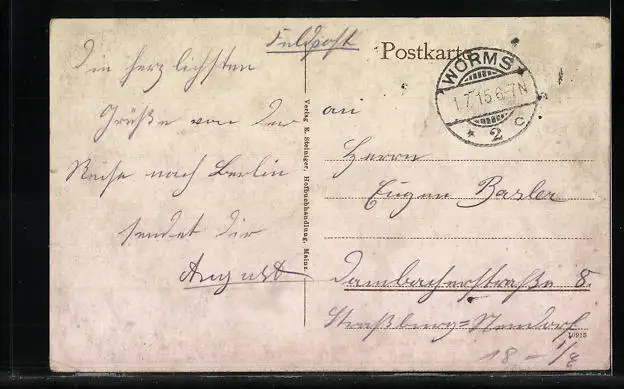 Feldpost
Postkarte
WORMS
1.7.15.6-7N
* 2 c
Die herzlichsten
Grüße von der
Reise nach Berlin
sendet dir
August
Verlag E. Steiniger, Hofbuchhandlung, Mainz.
an
Herrn
Eugen Basler
Dambacherstraße 8.
Straßburg=Neudorf
10915
18 -